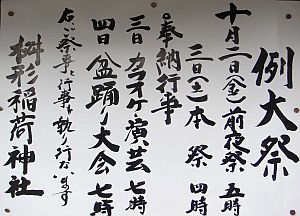 例大祭
十月二日(金)前夜祭 五時
三日(土)本祭 四時
◎奉納行事
三日 カラオケ・演芸 七時
四日 盆踊り大会 七時
右ご祭事と行事を執り行ないます
桝形稲荷神社